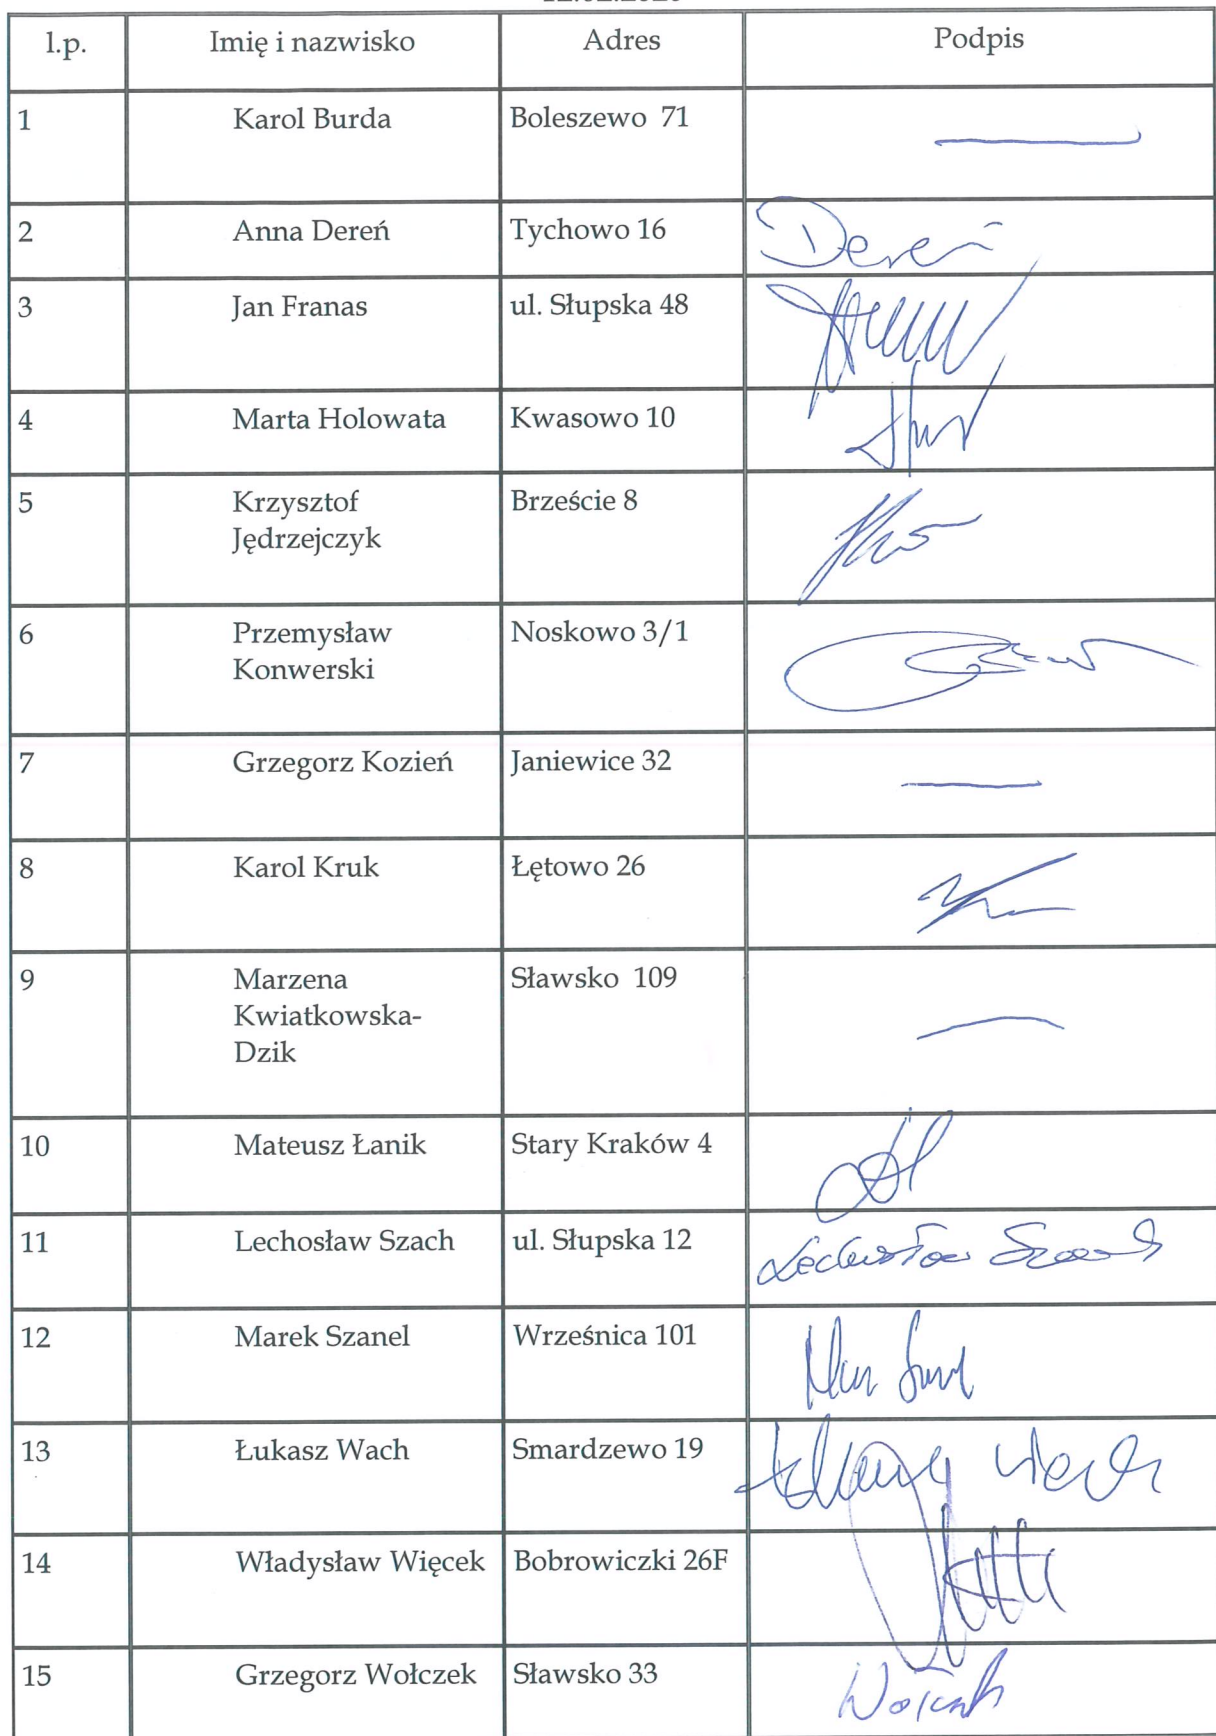 l.p. Imię i nazwisko Adres Podpis
1 Karol Burda Boleszewo 71
2 Anna Dereń Tychowo 16 Dereń
3 Jan Franas ul. Słupska 48
4 Marta Holowata Kwasowo 10
5 Krzysztof Brzeście 8
Jędrzejczyk
6 Przemysław Noskowo 3/1
Konwerski
7 Grzegorz Kozień Janiewice 32
8 Karol Kruk Łętowo 26
9 Marzena Sławsko 109
Kwiatkowska-
Dzik
10 Mateusz Łanik Stary Kraków 4
11 Lechosław Szach ul. Słupska 12 Lechosław Szach
12 Marek Szanel Wrześnica 101
13 Łukasz Wach Smardzewo 19
14 Władysław Więcek Bobrowiczki 26F
15 Grzegorz Wołczek Sławsko 33